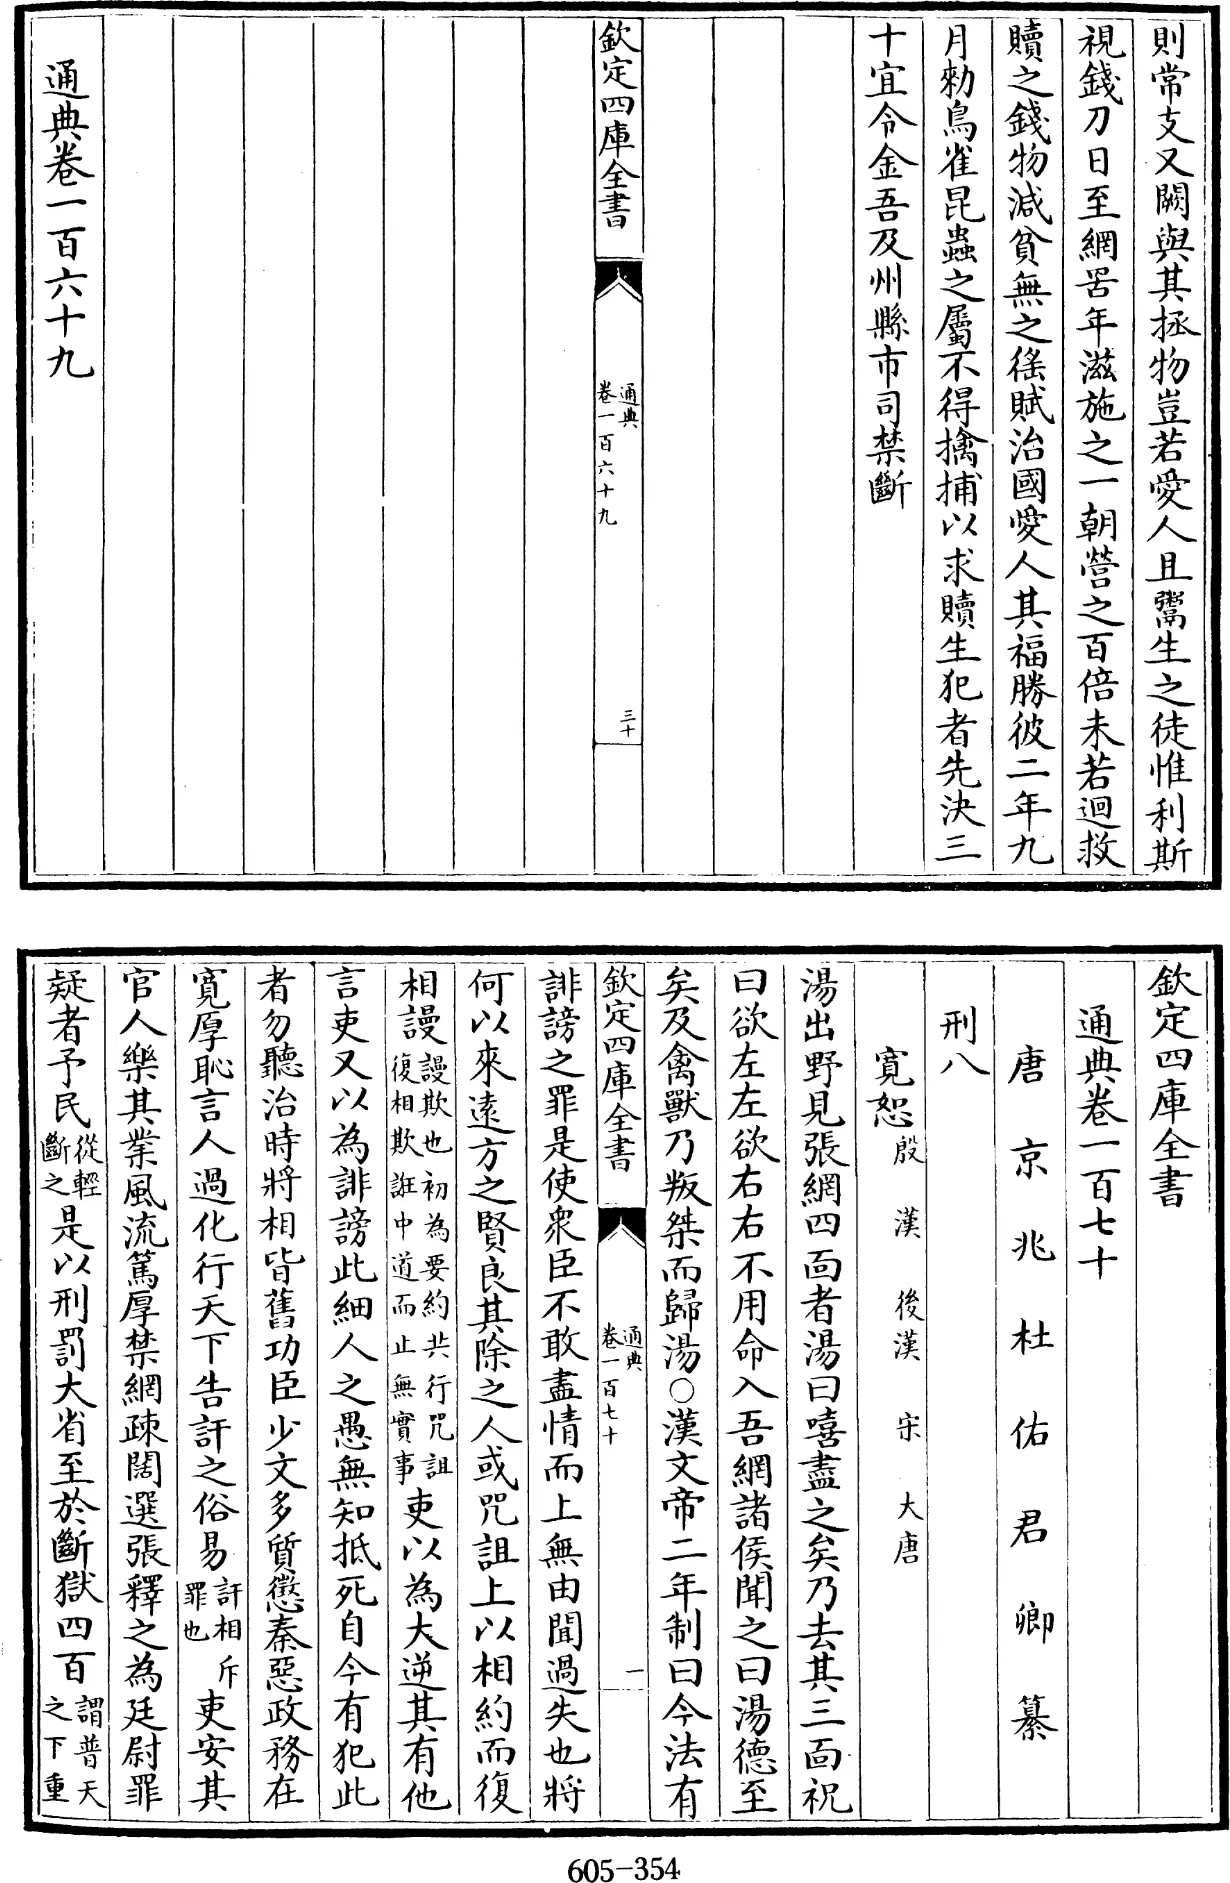 則常支又闕與其拯物豈若愛人且鬻生之徒惟利斯
視錢刀日至網罟年滋施之一朝營之百倍未若迴救
贖之錢物減貧無之徭賦治國愛人其福勝彼二年九
月勅鳥雀昆蟲之屬不得擒捕以求贖生犯者先決三
十宜令金吾及州縣市司禁斷
欽定四庫全書
通典
卷一百六十九
三十
通典卷一百六十九
欽定四庫全書
通典卷一百七十
唐京兆杜佑君卿纂
刑八
寬恕殷漢後漢宋大唐
湯出野見張網四面者湯曰嘻盡之矣乃去其三面祝
曰欲左左欲右右不用命入吾網諸侯聞之曰湯德至
矣及禽獸乃叛桀而歸湯○漢文帝二年制曰今法有
欽定四庫全書
通典
卷一百七十
一
誹謗之罪是使衆臣不敢盡情而上無由聞過失也將
何以來遠方之賢良其除之人或咒詛上以相約而復
相謾謾欺也初為要約共行咒詛復相欺誑中道而止無實事吏以為大逆其有他
言吏又以為誹謗此細人之愚無知抵死自今有犯此
者勿聽治時將相皆舊功臣少文多質懲秦惡政務在
寛厚恥言人過化行天下告訐之俗易訐相斥罪也吏安其
官人樂其業風流篤厚禁網疎闊選張釋之為廷尉罪
疑者予民從輕斷之是以刑罰大省至於斷獄四百謂普天之下重
605-354